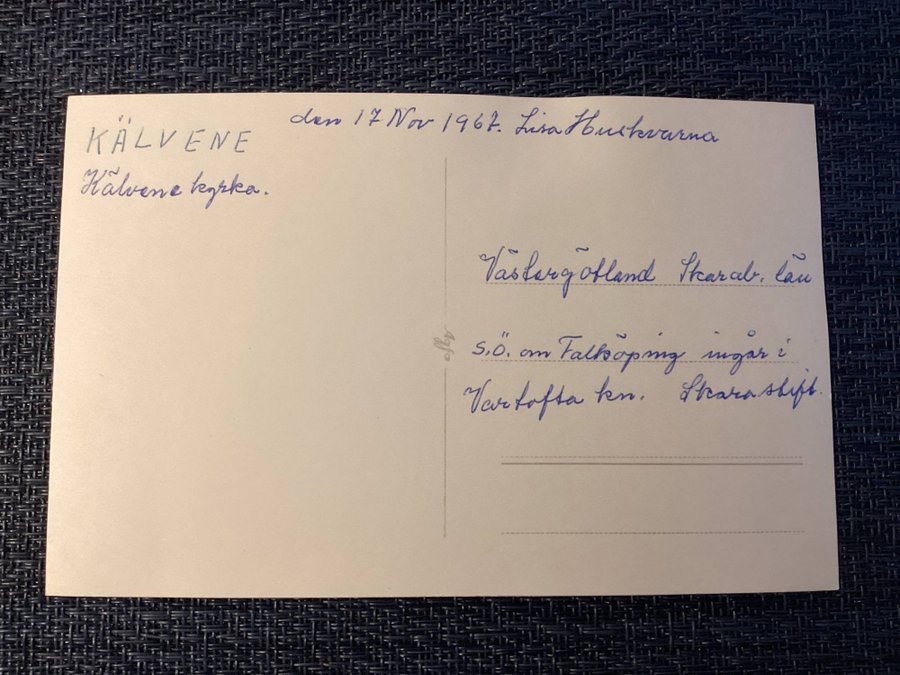 KÄLVENE
den 17 Nov 1967. Lisa Huskvarna
Kälvene kyrka.
Västergötland Skarab. län
s.ö. om Falköping ingår i
Vartofta kn. Skara stift.
Agfa